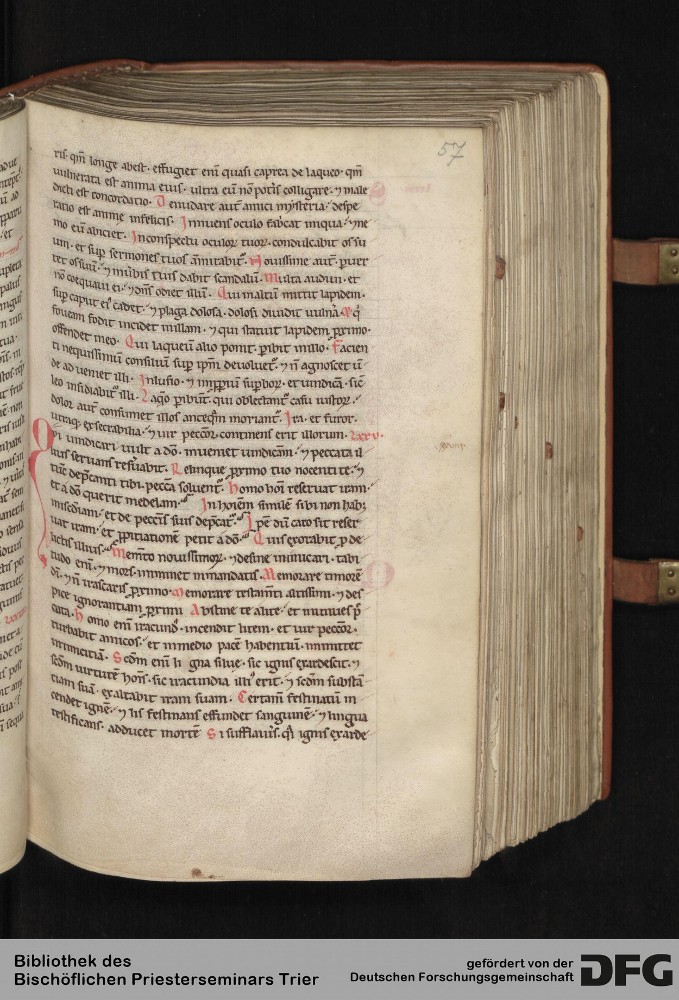 57
ris. qm̄ longe abest. effugiet eni quasi caprea de laqueo. qm̄
uulnerata est anima eius. ultra eū nō potis colligare. ⁊ male
dicti est concordatio. Denudare aut amici mysteria. despe
ratio est anime infelicis. Innuens oculo fabricat iniqua. ⁊ ne
mo eū abiciet. Inconspectu oculoꝝ tuoꝝ condulcabit os su
um. et sup sermones tuos ammirabit. Nouissime aut puer
tet os suū. ⁊ inuerbis tuis dabit scandalū. Multa audiui. et
nō coequaui ei. ⁊ dn̄s odiet illū. Qui inaltū mittit lapidem.
sup caput ei cadet. ⁊ plaga dolosa. dolosi diuidit uulna. Et q
foueam fodit incidet inillam. ⁊ qui statuit lapidem pximo.
offendet in eo. Qui laqueū alio ponit. pibit inillo. Facien
ti nequissimū consiliū sup ipm deuoluet. ⁊ n̄ agnoscet ū
de adueniet illi. Inlusio. ⁊ impropiū supboꝝ. et uindicta sic
leo insidiabit illi. Laqo pibūt. qui oblectant casu iustoꝝ.
dolor aut consumet illos anteqm moriant. Ira. et furor.
utraq; exsecrabilia. ⁊ uir peccor. continens erit illorum. xxxv.
Qui uindicari uult a dō. inueniet uindictam. ⁊ peccata il
lius seruans reseruabit. Relinque pximo tuo nocenti te. ⁊
tūc depcanti tibi. peccā soluent. Homo hoī reseruat iram.
et a dō querit medelam. In hoiem similē sibi non hab;
misediam. et de peccis suis depcat. Ipe dū caro sit reser
uat iram. et ppitiationē petit a dō. Quis exorabit p de
lictis illius. Memto nouissimoꝝ. ⁊ desine inimicari. tabi
tudo eni. ⁊ mors imminet inmandatis. Memorare timorē
dī. ⁊ n̄ irascaris pximo. Memorare testamti altissimi. ⁊ des
pice ignorantiam pximi. Abstine te a lite. et minues p̄
cata. Homo eni iracund. incendit litem. et uir peccor.
turbabit amicos. et inmedio pacē habentiū. inmittet
inimicitiā. Scdm eni ligna silue. sic ignis exardescit. ⁊
scdm uirtutē hoīs. sic iracundia illi erit. ⁊ scdm substā
tiam suā. exaltabit iram suam. Certam festinatū in
cendet ignē. ⁊ lis festinans effundet sanguinē. ⁊ lingua
testificans. adducet mortē. Si sufflauis. q̄ ignis exarde
Bibliothek des
Bischöflichen Priesterseminars Trier
gefördert von der
Deutschen Forschungsgemeinschaft
DFG